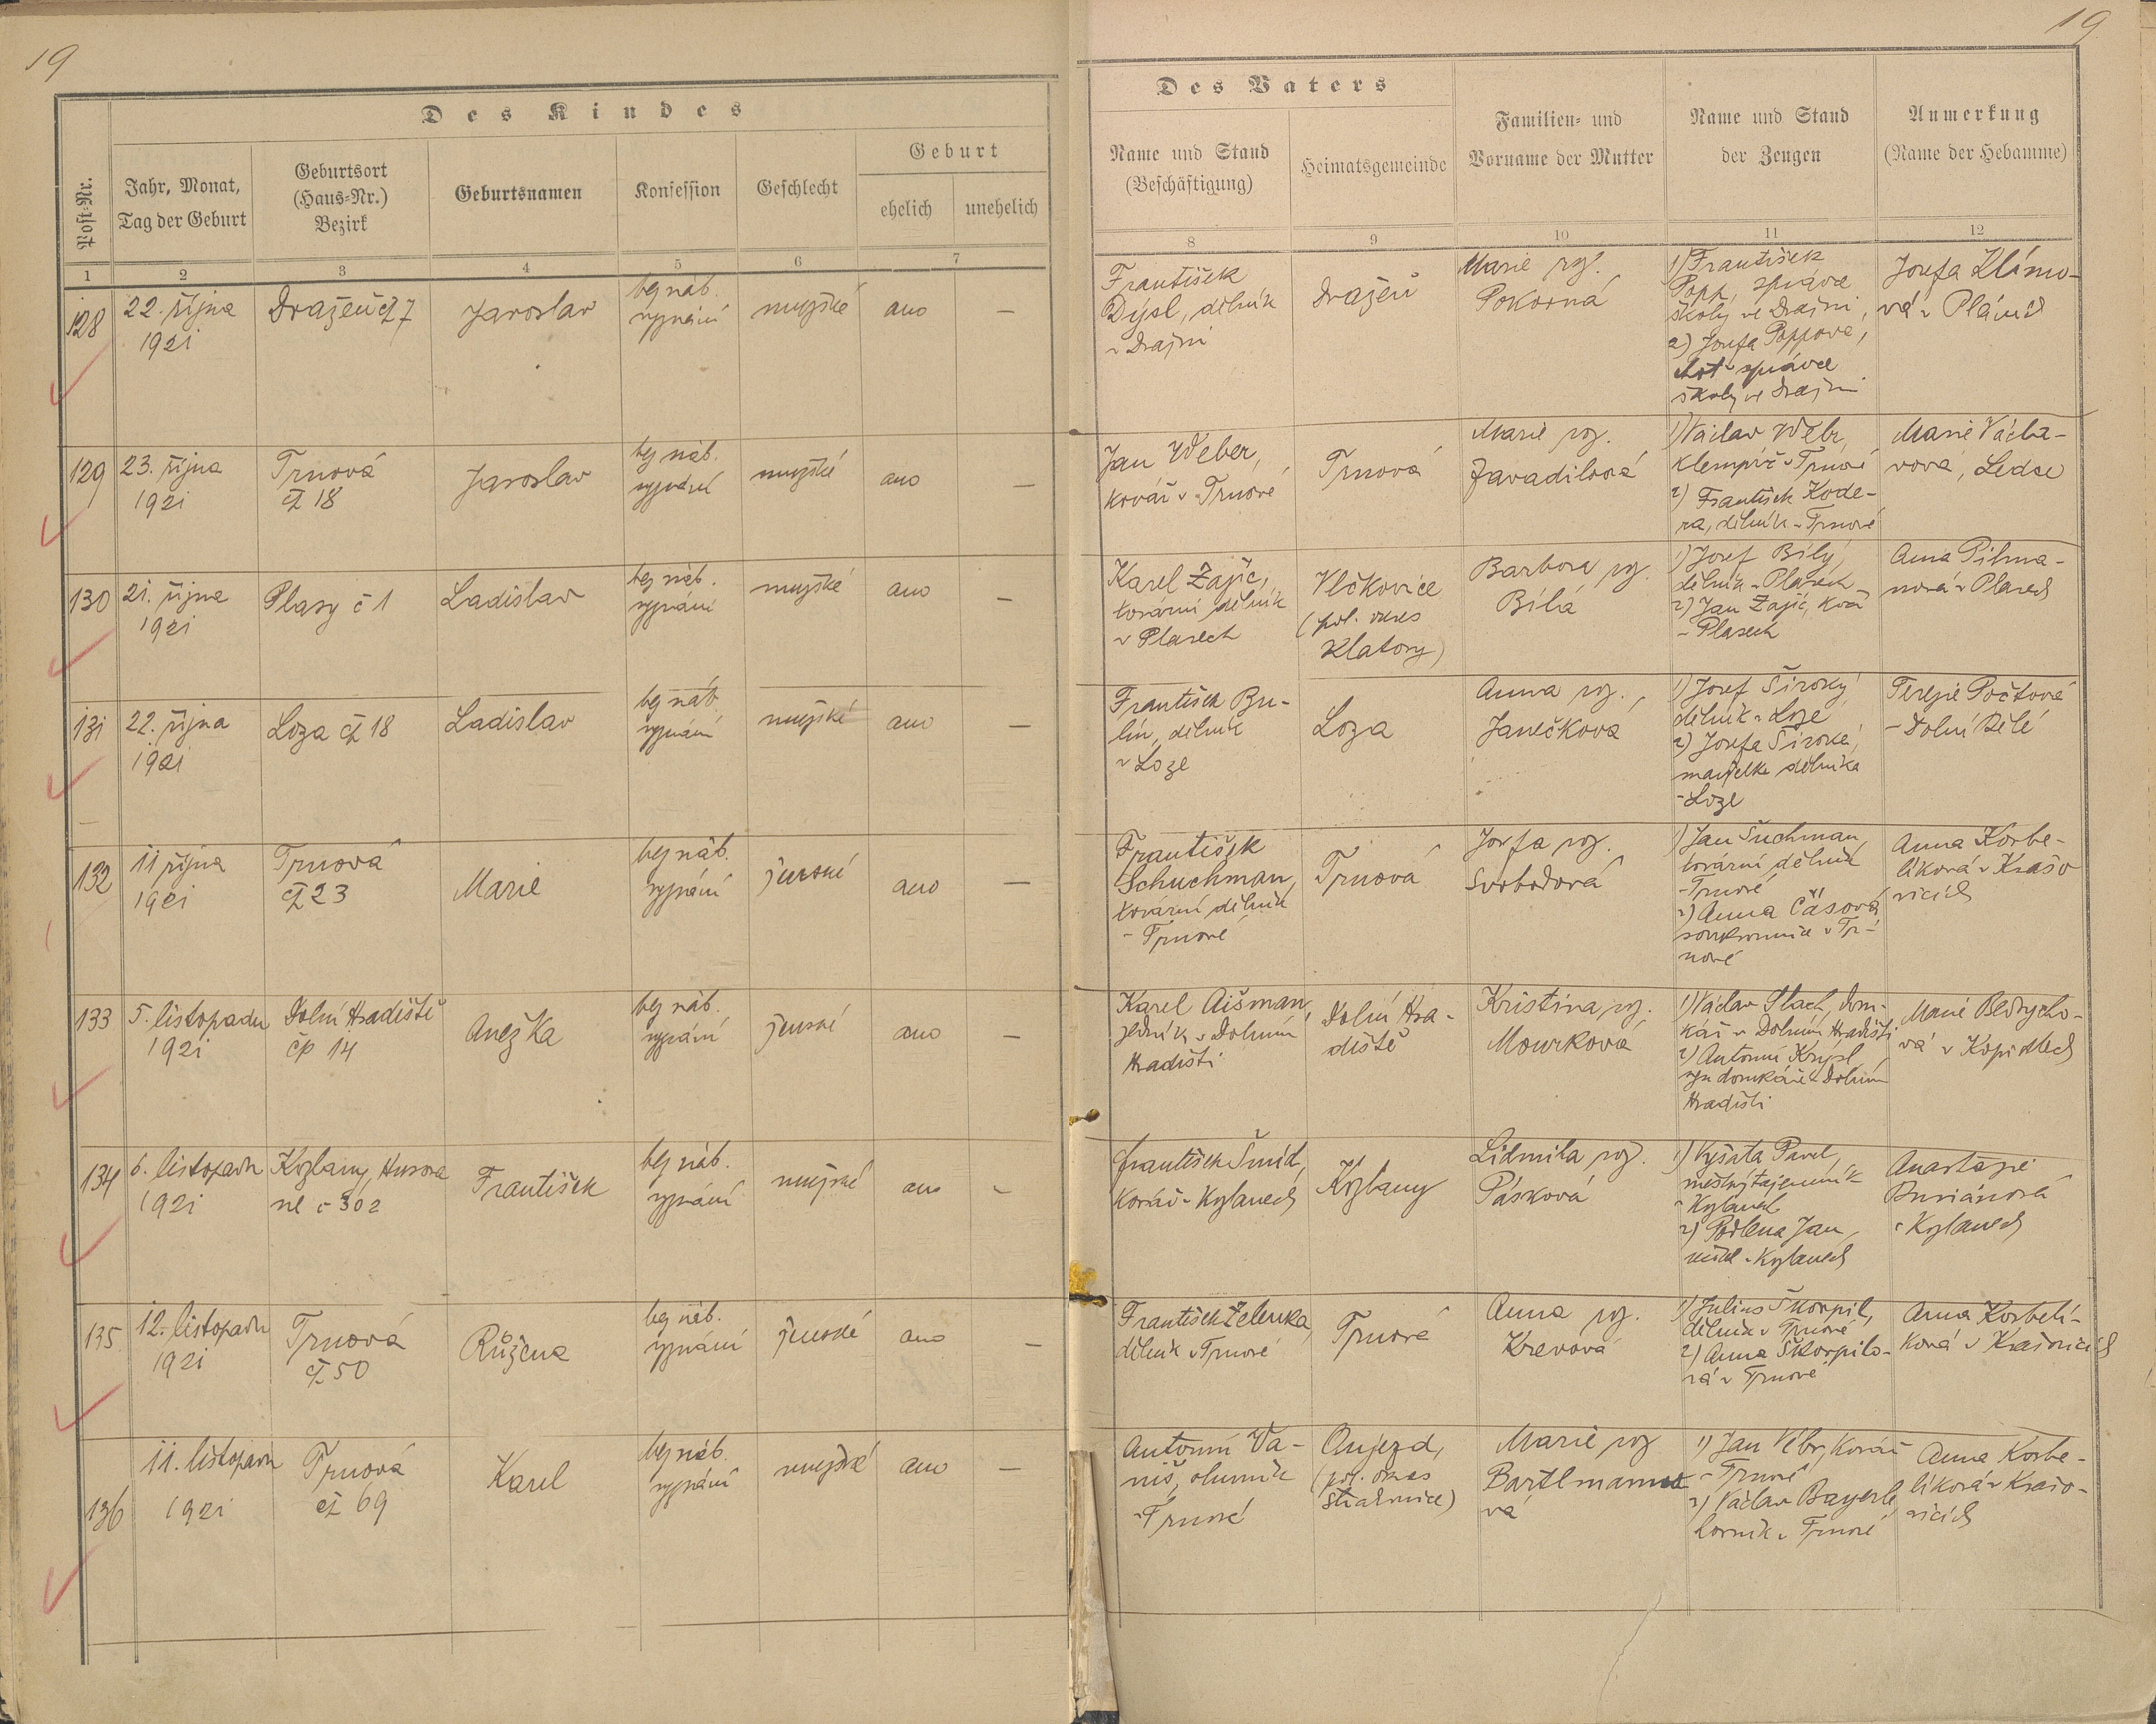 19
19
Des Kindes
Post-Nr.
Jahr, Monat,
Tag der Geburt
Geburtsort
(Haus-Nr.)
Bezirk
Geburtsnamen
Konfession
Geschlecht
Geburt
ehelich
unehelich
1
2
3
4
5
6
7
Des Vaters
Name und Stand
(Beschäftigung)
Heimatsgemeinde
Familien- und
Vorname der Mutter
Name und Stand
der Zeugen
Anmerkung
(Name der Hebamme)
8
9
10
11
12
128
22. října
1921
Dražeň čp 7
Jaroslav
bez náb.
vyznání
mužské
ano
—
František
Dýsl, dělník
v Dražni
Dražeň
Marie roz.
Pokorná
1) František
Popp, správce
školy ve Dražni,
2) Josefa Poppova,
choť správce
školy ve Dražni
Josefa Klímo-
vá v Plánich
129
23. října
1921
Trnová
čp 18
Jaroslav
bez náb.
vyznání
mužské
ano
—
Jan Weber,
kovář v Trnové
Trnová
Marie roz.
Zavadilová
1) Václav Webr,
klempíř v Trnové
2) František Kode-
ra, dělník v Trnové
Marie Václa-
vová, Ledce
130
21. října
1921
Plasy č 1
Ladislav
bez náb.
vyznání
mužské
ano
—
Karel Zajíc,
tovární dělník
v Plasech
Vlčkovice
(pol. okres
Klatovy)
Barbora roz.
Bílá
1) Josef Bílý,
dělník v Plasech
2) Jan Zajíc,
v Plasech
Anna Pilma-
nová v Plasech
131
22. října
1921
Loza čp 18
Ladislav
bez náb.
vyznání
mužské
ano
—
František Bu-
lín, dělník
v Loze
Loza
Anna roz.
Janečková
1) Josef Široký
dělník v Loze
2) Josefa Široká,
manželka dělníka
v Loze
Terezie Počtová
v Dolní Bělé
132
11 října
1921
Trnová
čp 23
Marie
bez náb.
vyznání
ženské
ano
—
František
Schuchman,
tovární dělník
v Trnové
Trnová
Josefa roz.
Svobodová
1) Jan Šuchman
tovární dělník
v Trnové
2) Anna Čásová
soukromnice v Tr-
nové
Anna Korbe-
líková v Krašo
vicích
133
5. listopadu
1921
Dolní Hradiště
čp 14
Anežka
bez náb.
vyznání
ženské
ano
—
Karel Aišman,
zedník v Dolním
Hradišti
Dolní Hra-
diště
Kristina roz.
Mourková
1) Václav Plach, dom-
kář v Dolním Hradišti
2) Antonín Krýsl,
syn domkáře v Dolním
Hradišti
Marie Bedrycho-
vá v Kopidlech
134
6. listopadu
1921
Kožlany, Husova
ul č 302
František
bez náb.
vyznání
mužské
ano
-
František Šmíd,
kovář v Kožlanech
Kožlany
Lidmila roz.
Pásková
1) Vyšata Pavel,
městský tajemník
v Kožlanech
2) Podlena Jan,
v Kožlanech
Anastazie
Buriánová
v Kožlanech
135
12. listopadu
1921
Trnová
čp 50
Růžena
bez náb.
vyznání
ženské
ano
—
František Zelenka,
dělník v Trnové
Trnová
Anna roz.
Krevová
1) Julius Škorpil,
dělník v Trnové
2) Anna Škorpilo-
vá v Trnové
Anna Korbelí-
ková v Krašovicích
136
11. listopadu
1921
Trnová
čp 69
Karel
bez náb.
vyznání
mužské
ano
—
Antonín Va-
niš,
v Trnové
Aujezd,
(pol. okres
Strakonice)
Marie roz
Bartlmanno
vá
1) Jan Vébr, kovář
v Trnové
2) Václav Bayerle,
horník v Trnové
Anna Korbe-
líková v Krašo-
vicích